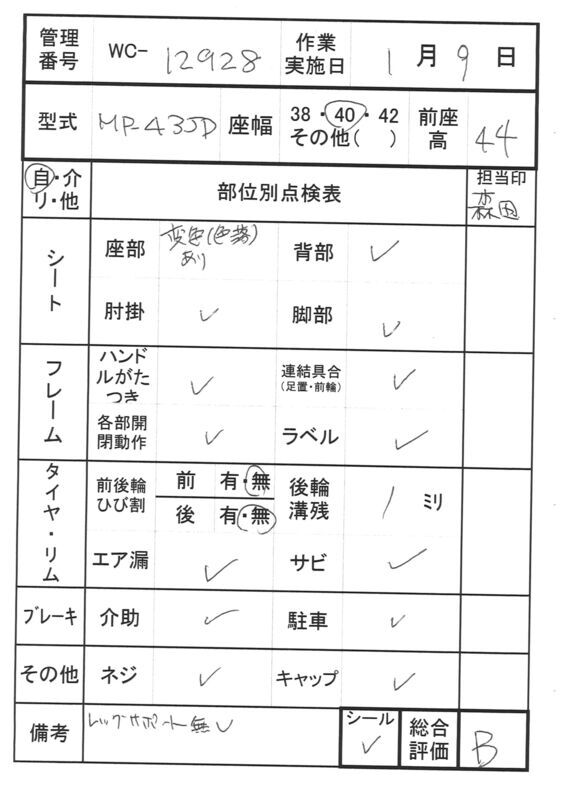 管理番号 WC- 12928 作業実施日 1月9日
型式 MP-43JD 座幅 38・40・42 その他( ) 前座高 44
自・介 リ・他 部位別点検表 担当印
森田
シート 座部 変色(色落) あり 背部 ✓
肘掛 ✓ 脚部 ✓
フレーム ハンドルがたつき ✓ 連結具合 (足置・前輪) ✓
各部開閉動作 ✓ ラベル ✓
タイヤ・リム 前後輪ひび割 前 有・無 後輪溝残 1 ミリ
後 有・無
エア漏 ✓ サビ ✓
ブレーキ 介助 ✓ 駐車 ✓
その他 ネジ ✓ キャップ ✓
備考 レッグサポート無し シール ✓ 総合評価 B